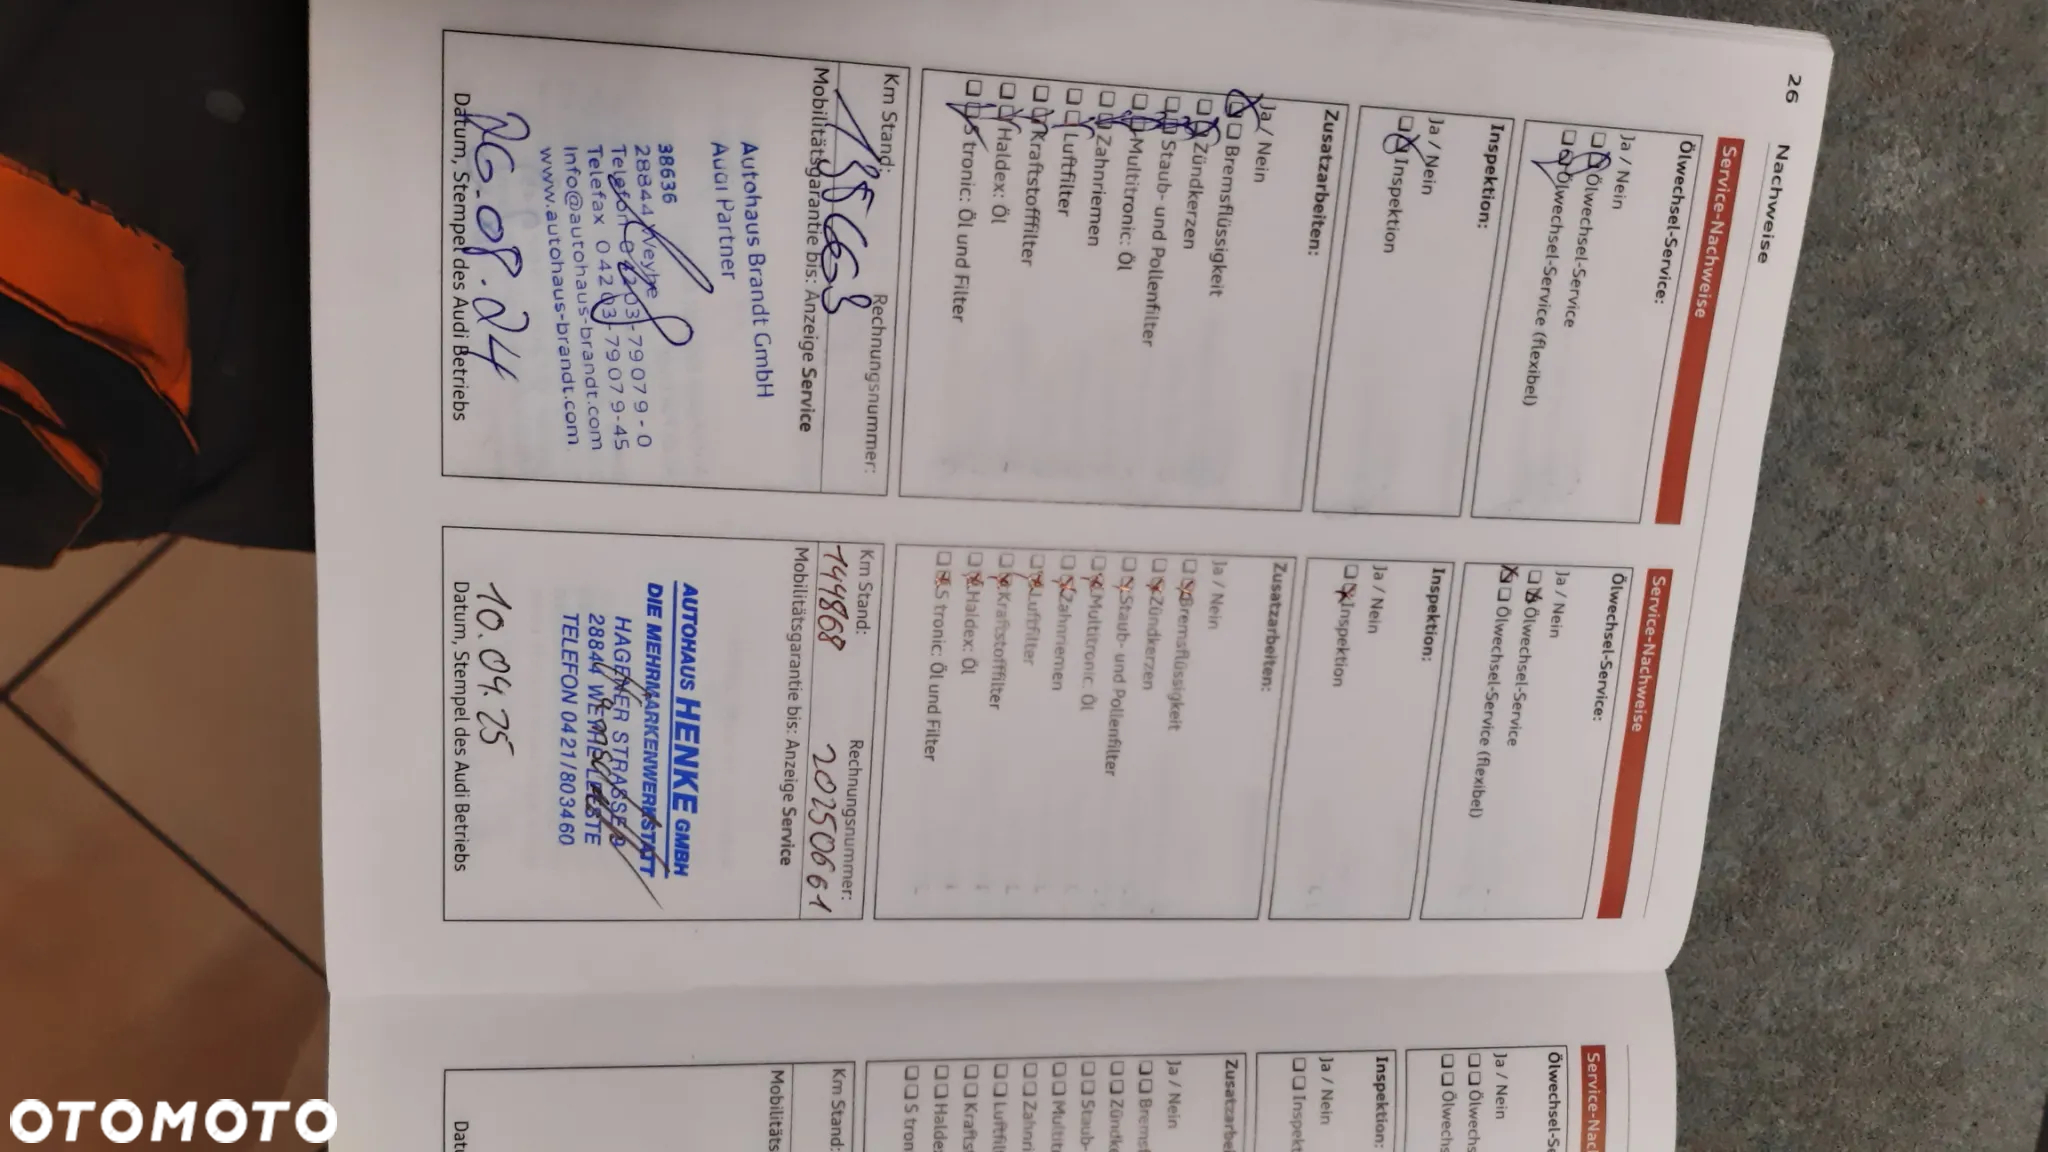 26 Nachweise
Service-Nachweise
Ölwechsel-Service:
Ja / Nein
Ölwechsel-Service
Ölwechsel-Service (flexibel)
Inspektion:
Ja / Nein
Inspektion
Zusatzarbeiten:
Ja / Nein
Bremsflüssigkeit
Zündkerzen
Staub- und Pollenfilter
Multitronic: Öl
Zahnriemen
Luftfilter
Kraftstofffilter
Haldex: Öl
S tronic: Öl und Filter
Km Stand: Rechnungsnummer:
Mobilitätsgarantie bis: Anzeige Service
Autohaus Brandt GmbH
Audi Partner
38636
28844 Weyhe
Telefon 04203-79079-0
Telefax 04203-79079-45
Info@autohaus-brandt.com
www.autohaus-brandt.com
26.08.24
Datum, Stempel des Audi Betriebs
Service-Nachweise
Ölwechsel-Service:
Ja / Nein
Ölwechsel-Service
Ölwechsel-Service (flexibel)
Inspektion:
Ja / Nein
Inspektion
Zusatzarbeiten:
Ja / Nein
Bremsflüssigkeit
Zündkerzen
Staub- und Pollenfilter
Multitronic: Öl
Zahnriemen
Luftfilter
Kraftstofffilter
Haldex: Öl
S tronic: Öl und Filter
Km Stand: Rechnungsnummer:
144868 20250661
Mobilitätsgarantie bis: Anzeige Service
AUTOHAUS HENKE GMBH
DIE MEHRMARKENWERKSTATT
HAGENER STRASSE
28844 WEYHE-LEESTE
TELEFON 0421/803460
10.04.25
Datum, Stempel des Audi Betriebs
Service-Nac
Ölwechsel-Se
Ja / Nein
Ölwechs
Ölwechs
Inspektion:
Ja / Nein
Inspekt
Zusatzarbei
Ja / Nein
Bremsf
Zündke
Staub-
Multitr
Zahnri
Luftfil
Krafts
Halde
S tron
Km Stand:
Mobilitäts
Dat
OTOMOTO